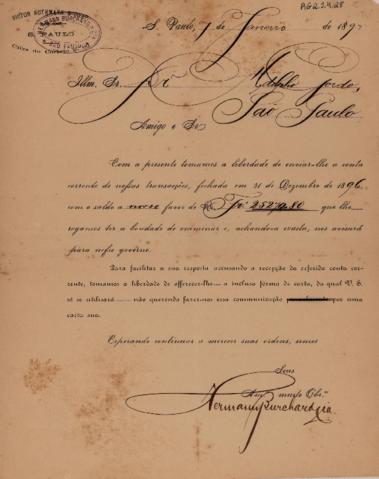 AG2.4.28
VICTOR NOTHMANN
S. PAULO
Caixa do Correio
S. Paulo, 1 de Janeiro de 1897
Illm. Sr.
Adolpho Gordo,
São Paulo
Amigo e Sr.
Com a presente tomamos a liberdade de enviar-lhe a conta
corrente de nossas transacções, fechada em 31 de Dezembro de 1896
com o saldo a nosso favor de Rs. 252$980 que lhe
rogamos ter a bondade de examinar e, achando-a exacta, nos accusará
para nosso governo.
Para facilitar a sua resposta accusando a recepção da referida conta cor-
rente, tomamos a liberdade de offerecer-lhe a inclusa forma de carta, da qual V. S.
só se utilisará não querendo fazer-nos essa communicação por uma
carta sua.
Esperando continuar a merecer suas ordens, somos
Seus
Amos. muito Obros.
Hermann Burchard & Cia.